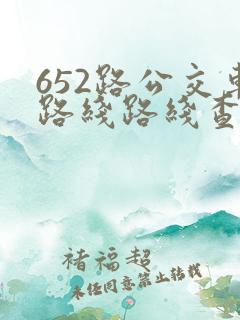 652路公交车
路线路线查
褚福超
未经同意禁止转载